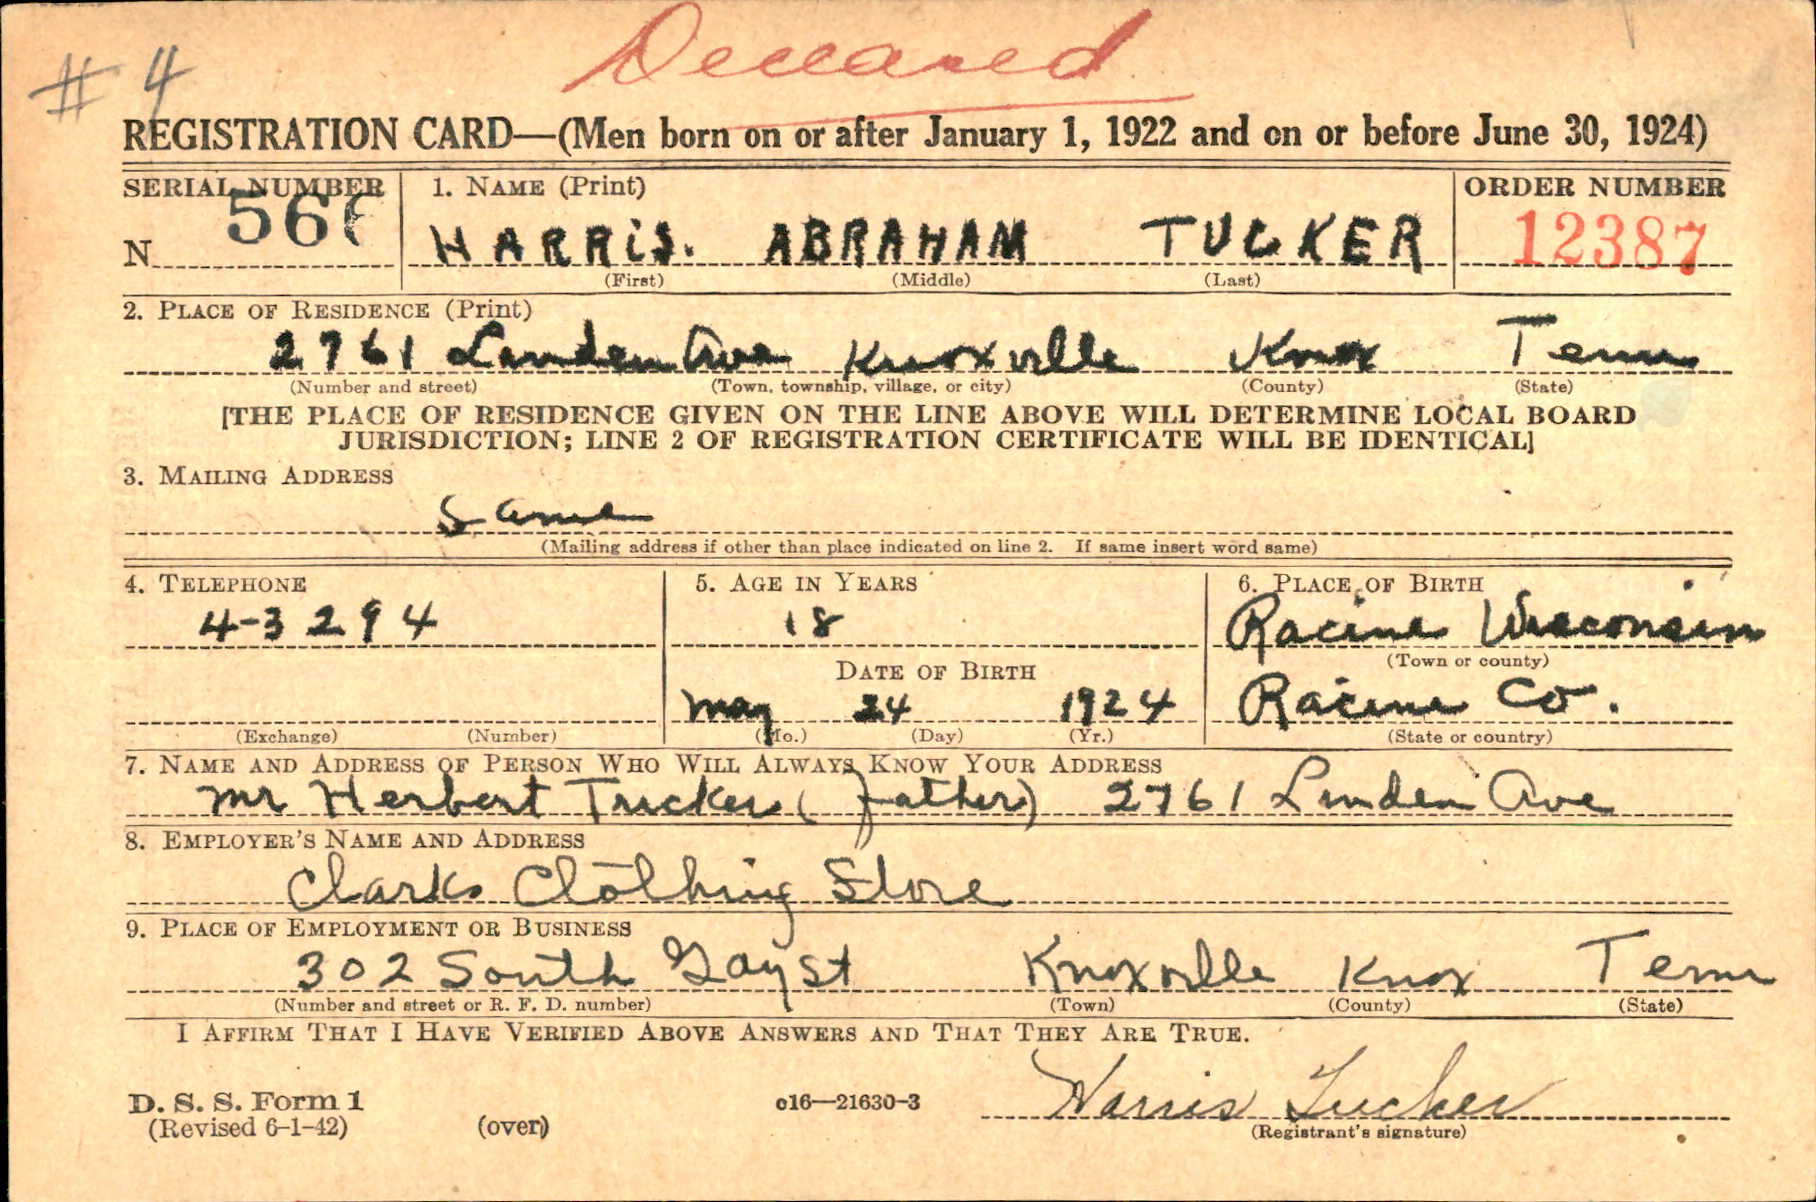 # 4
Deceased
REGISTRATION CARD—(Men born on or after January 1, 1922 and on or before June 30, 1924)
SERIAL NUMBER
1. NAME (Print)
ORDER NUMBER
N
HARRIS. ABRAHAM TUCKER
12387
(First) (Middle) (Last)
2. PLACE OF RESIDENCE (Print)
2761 Linden Ave Knoxville Knox Tenn
(Number and street) (Town, township, village, or city) (County) (State)
[THE PLACE OF RESIDENCE GIVEN ON THE LINE ABOVE WILL DETERMINE LOCAL BOARD
JURISDICTION; LINE 2 OF REGISTRATION CERTIFICATE WILL BE IDENTICAL]
3. MAILING ADDRESS
Same
(Mailing address if other than place indicated on line 2. If same insert word same)
4. TELEPHONE
5. AGE IN YEARS
6. PLACE OF BIRTH
4-3294
18
Racine Wisconsin
(Town or county)
DATE OF BIRTH
May 24 1924
Racine Co.
(Exchange) (Number)
(Mo.) (Day) (Yr.)
(State or country)
7. NAME AND ADDRESS OF PERSON WHO WILL ALWAYS KNOW YOUR ADDRESS
Mr Herbert Tucker (Father) 2761 Linden Ave
8. EMPLOYER'S NAME AND ADDRESS
Clarks Clothing Store
9. PLACE OF EMPLOYMENT OR BUSINESS
302 South Gay St Knoxville Knox Tenn
(Number and street or R. F. D. number) (Town) (County) (State)
I AFFIRM THAT I HAVE VERIFIED ABOVE ANSWERS AND THAT THEY ARE TRUE.
D. S. S. Form 1
(Revised 6-1-42)
(over)
c16—21630-3
Harris Tucker
(Registrant's signature)